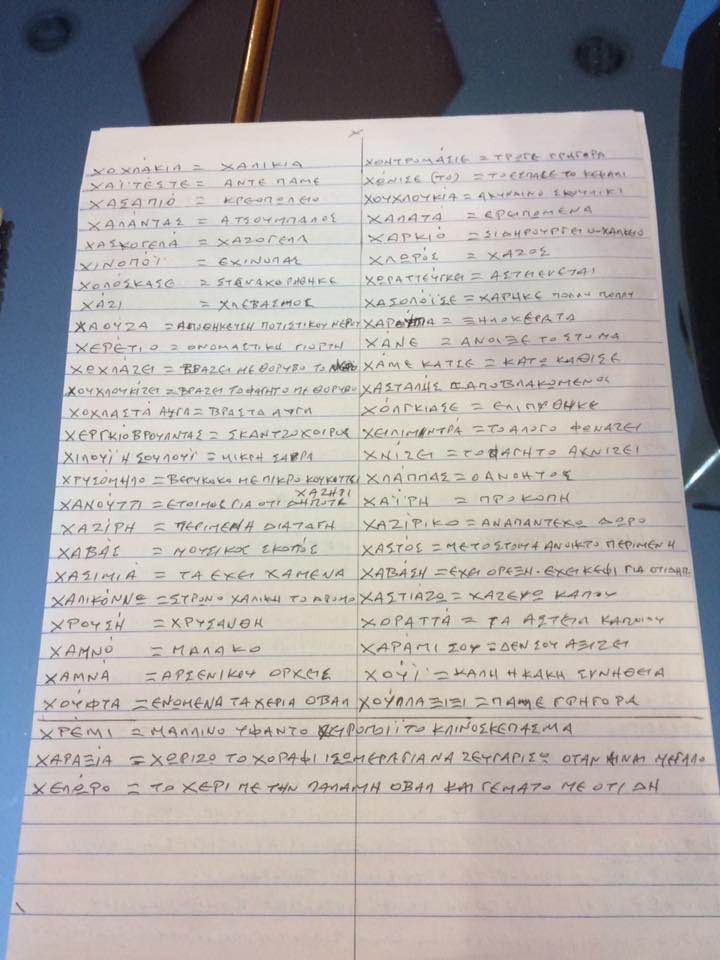 Χ
ΧΟΧΛΆΚΙΑ = ΧΑΛΙΚΙΑ
ΧΑΪΤΕΣΤΕ = ΑΝΤΕ ΠΑΜΕ
ΧΑΣΑΠΙΌ = ΚΡΕΟΠΟΛΕΙΟ
ΧΑΛΆΝΤΑΣ = ΑΤΣΟΥΜΠΑΛΟΣ
ΧΑΣΚΟΓΕΛΆ = ΧΑΖΟΓΕΛΑ
ΧΙΝΟΠΌΪ = ΕΧΙΝΟΠΑΣ
ΧΟΛΌΣΚΑΣΕ = ΣΤΕΝΑΧΟΡΗΘΗΚΕ
ΧΆΖΙ = ΧΛΕΒΑΣΜΟΣ
ΧΑΟΥΖΑ = ΑΠΟΘΗΚΕΥΣΗ ΠΟΤΙΣΤΙΚΟΥ ΝΕΡΟΥ
ΧΕΡΈΤΙΟ = ΟΝΟΜΑΣΤΙΚΗ ΓΙΟΡΤΗ
ΧΩΧΛΆΖΕΙ = ΒΡΑΖΕΙ ΜΕ ΘΟΡΥΒΟ ΤΟ ΝΕΡΟ
ΧΟΥΧΛΟΥΚΊΖΕΙ = ΒΡΑΖΕΙ ΤΟ ΦΑΓΗΤΟ ΜΕ ΘΟΡΥΒΟ
ΧΟΧΛΑΣΤΆ ΑΥΓΑ = ΒΡΑΣΤΑ ΑΥΓΗ
ΧΕΡΓΚΙΟΒΡΟΥΛΝΤΑΣ = ΣΚΑΝΤΖΟΧΟΙΡΟΣ
ΧΙΛΟΥΪ Η ΣΟΥΛΟΥΪ = ΜΙΚΡΗ ΣΑΒΡΑ
ΧΡΥΣΟΜΗΛΟ = ΒΕΡΥΚΟΚΟ ΜΕ ΠΙΚΡΟ ΚΟΥΚΟΥΤΣΙ
ΧΑΖΗΡΙ
ΧΑΝΟΥΤΤΙ = ΕΤΟΙΜΟΣ ΓΙΑ ΟΤΙ ΔΗΠΟΤΕ
ΧΑΖΊΡΗ = ΠΕΡΙΜΕΝΗ ΔΙΑΤΑΓΗ
ΧΑΒΆΣ = ΜΟΥΣΙΚΟΣ ΣΚΟΠΌΣ
ΧΑΣΙΜΙΆ = ΤΑ ΕΧΕΙ ΧΑΜΕΝΑ
ΧΑΛΙΚΌΝΝΩ = ΣΤΡΟΝΟ ΧΑΛΙΚΗ ΤΟ ΔΡΟΜΟ
ΧΡΟΥΣΉ = ΧΡΥΣΑΝΘΗ
ΧΑΜΝΌ = ΜΑΛΑΚΟ
ΧΑΜΝΆ = ΑΡΣΕΝΙΚΟΥ ΟΡΧΕΙΣ
ΧΟΎΦΤΑ = ΕΝΩΜΕΝΑ ΤΑ ΧΕΡΙΑ ΟΒΑΛ
ΧΟΝΤΡΟΜΆΣΙΕ = ΤΡΩΓΕ ΓΡΗΓΟΡΑ
ΧΌΝΙΣΕ (ΤΟ) = ΤΟ ΕΣΠΑΣΕ ΤΟ ΚΕΦΑΛΙ
ΧΑΛΑΤΑ = ΕΡΩΠΟΜΕΝΑ
ΧΛΩΡΌΣ = ΧΑΖΟΣ
ΧΩΡΑΤΤΕΎΓΚΕΙ = ΑΣΤΕΙΕΥΕΤΑΙ
ΧΑΣΟΛΌΪΣΕ = ΧΑΡΗΚΕ ΠΟΛΛΥ ΠΟΛΛΥ
ΧΑΡΟΥΠΙΑ = ΞΗΛΟΚΕΡΑΤΑ
ΧΆΝΕ = ΑΝΟΙΞΕ ΤΟ ΣΤΟΜΑ
ΧΆΜΕ ΚΑΤΣΕ = ΚΑΤΩ ΚΑΘΙΣΕ
ΧΑΣΤΑΛΉΣ = ΑΠΟΒΛΑΚΟΜΕΝΟΣ
ΧΌΛΓΚΙΑΣΕ = ΕΛΙΠΗΘΗΚΕ
ΧΕΙΛΙΜΙΝΤΡΆ = ΤΟ ΑΛΟΓΟ ΦΕΝΑΖΕΙ
ΧΝΊΖΕΙ = ΤΟ ΦΑΓΗΤΟ ΑΧΝΙΖΕΙ
ΧΛΆΠΠΑΣ = Ο ΑΝΟΗΤΟΣ
ΧΑΪΡΗ = ΠΡΟΚΟΠΗ
ΧΑΖΊΡΙΚΟ = ΑΝΑΠΑΝΤΕΧΟ ΔΩΡΟ
ΧΑΣΤΌΣ = ΜΕ ΤΟ ΣΤΟΜΑ ΑΝΟΙΚΤΟ ΠΕΡΙΜΕΝΗ
ΧΑΒΆΣΗ = ΕΧΕΙ ΟΡΕΞΗ. ΕΧΕΙ ΚΕΦΙ ΓΙΑ ΟΤΙΔΗΠ
ΧΑΣΤΙΆΖΩ = ΧΑΖΕΥΩ ΚΑΠΟΥ
ΧΟΡΑΤΤΆ = ΤΑ ΑΣΤΕΙΑ ΚΑΠΟΙΟΥ
ΧΑΡΆΜΙ ΣΟΥ = ΔΕΝ ΣΟΥ ΑΞΙΖΕΙ
ΧΟΥΪ = ΚΑΛΗ Η ΚΑΚΗ ΣΥΝΗΘΕΙΑ
ΧΟΎΠΛΑΞΙΞΙ = ΠΑΜΕ ΓΡΗΓΟΡΑ
ΧΡΈΜΙ = ΜΑΛΛΙΝΟ ΥΦΑΝΤΟ ΧΕΙΡΟΠΟΙΪΤΟ ΚΛΙΝΟΣΚΕΠΑΣΜΑ
ΧΑΡΑΞΙΆ = ΧΩΡΙΖΩ ΤΟ ΧΟΡΑΦΙ ΙΣΩΜΕΡΑ ΓΙΑ ΝΑ ΖΕΥΓΑΡΙΣΩ ΟΤΑΝ ΕΙΝΑΙ ΜΕΓΑΛΟ
ΧΕΛΏΡΟ = ΤΟ ΧΕΡΙ ΜΕ ΤΗΝ ΠΑΛΑΜΗ ΟΒΑΛ ΚΑΙ ΓΕΜΑΤΟ ΜΕ ΟΤΙ ΔΗ